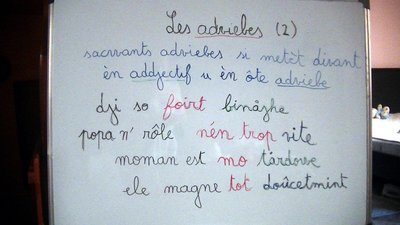 Les advierbes (2)
sacwants advierbes si metèt divant
èn addjectif u èn ôte advierbe
dji so foirt binâhe
popa n' rôle nén trop vite
moman est mo tårdowe
ele magne tot doûcetmint